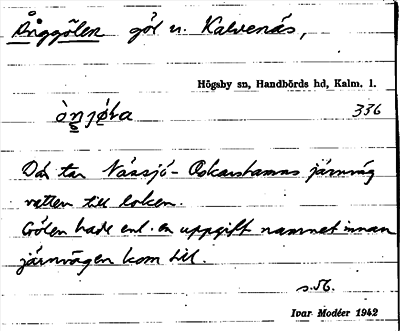 Ånggölen göl n. Kalvenäs,
Högsby sn, Handbörds hd, Kalm. l.
336
Där tar Nässjö-Oskarshamns järnväg
vatten till loken.
Gölen hade enl. en uppgift namnet innan
järnvägen kom till.
s. 56.
Ivar Modéer 1942